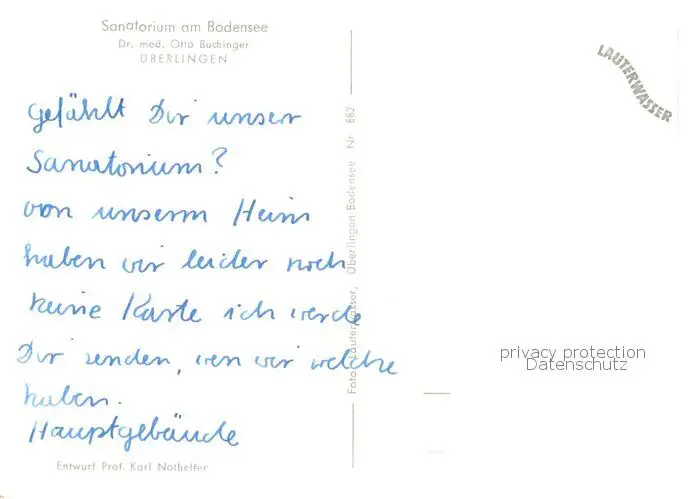 Sanatorium am Bodensee
Dr. med. Otto Buchinger
ÜBERLINGEN
LAUTERWASSER
gefählt Dir unser
Sanatorium?
von unserm Heim
haben wir leider noch
keine Karte ich werde
Dir senden, wen wir welche
haben.
Hauptgebäude
Entwurf Prof. Karl Nothelfer
Foto Lauterwasser, Überlingen Bodensee Nr 882
privacy protection
Datenschutz